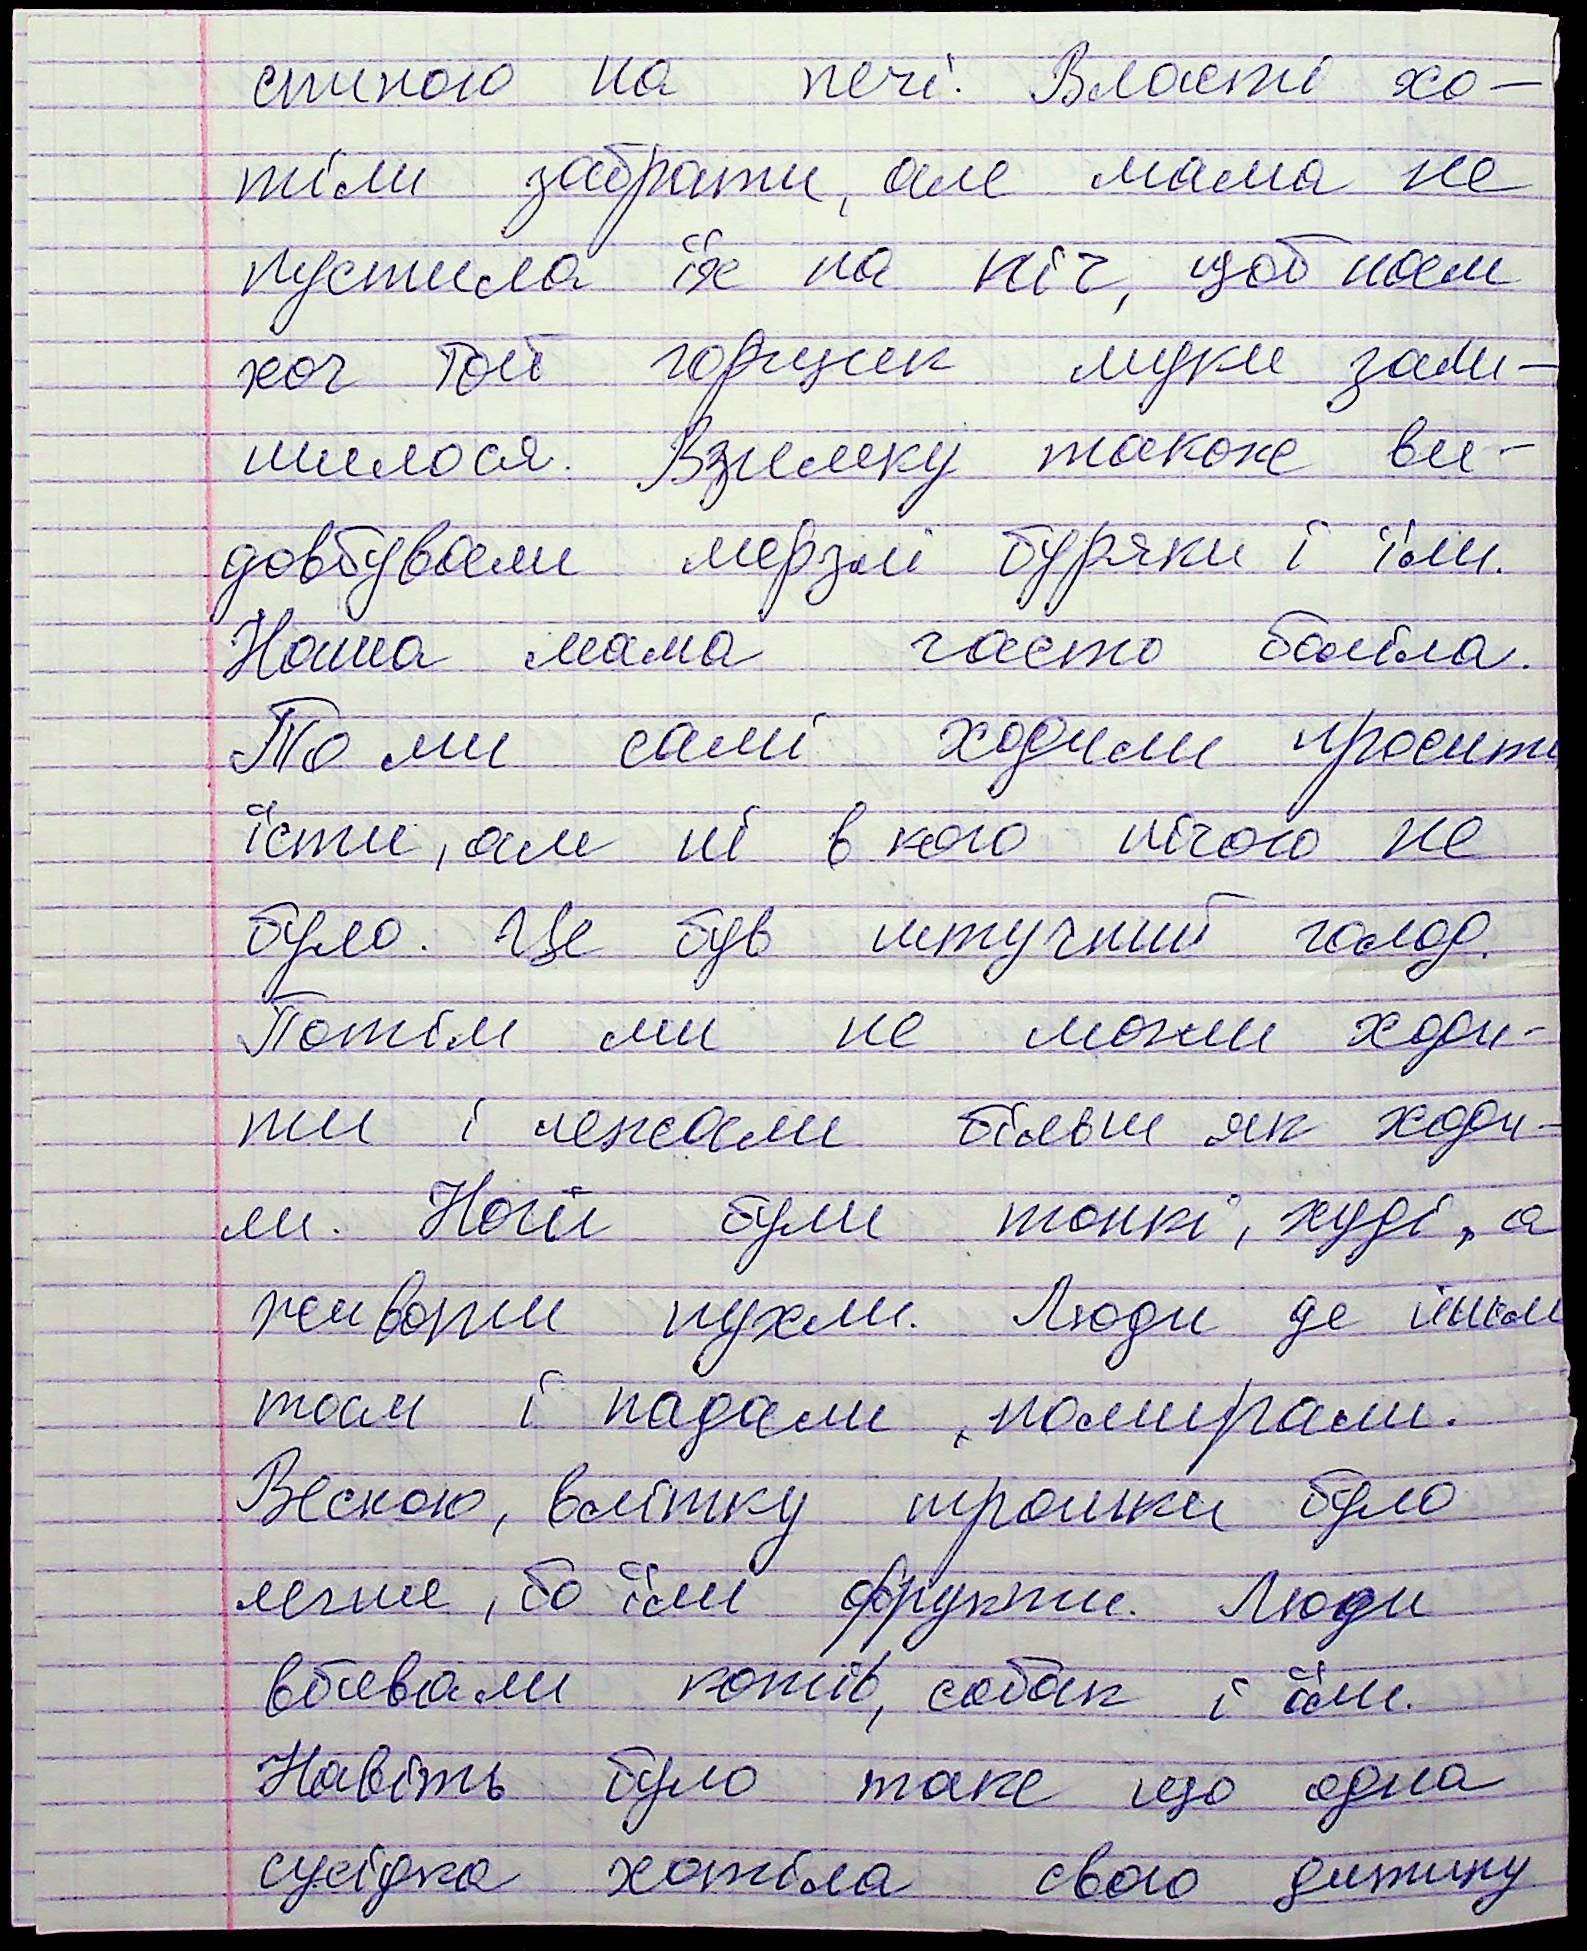 спиною на печі. Власті хо-
тіли забрати, але мама не
пустила їх на піч, щоб нам
хоч той горщик муки зали-
шилося. Взимку також ви-
довбували мерзлі буряки і їли.
Наша мама часто боліла.
То ми самі ходили просити
їсти, але ні в кого нічого не
було. Це був штучний голод.
Потім ми не могли ходи-
ти і лежали більш як ходи-
ли. Ноги були тонкі, худі, а
животи пухли. Люди де йшли
там і падали, помирали.
Весною, влітку трошки було
легше, бо їли фрукти. Люди
вбивали котів, собак і їли.
Навіть було таке що одна
сусідка хотіла свою дитину